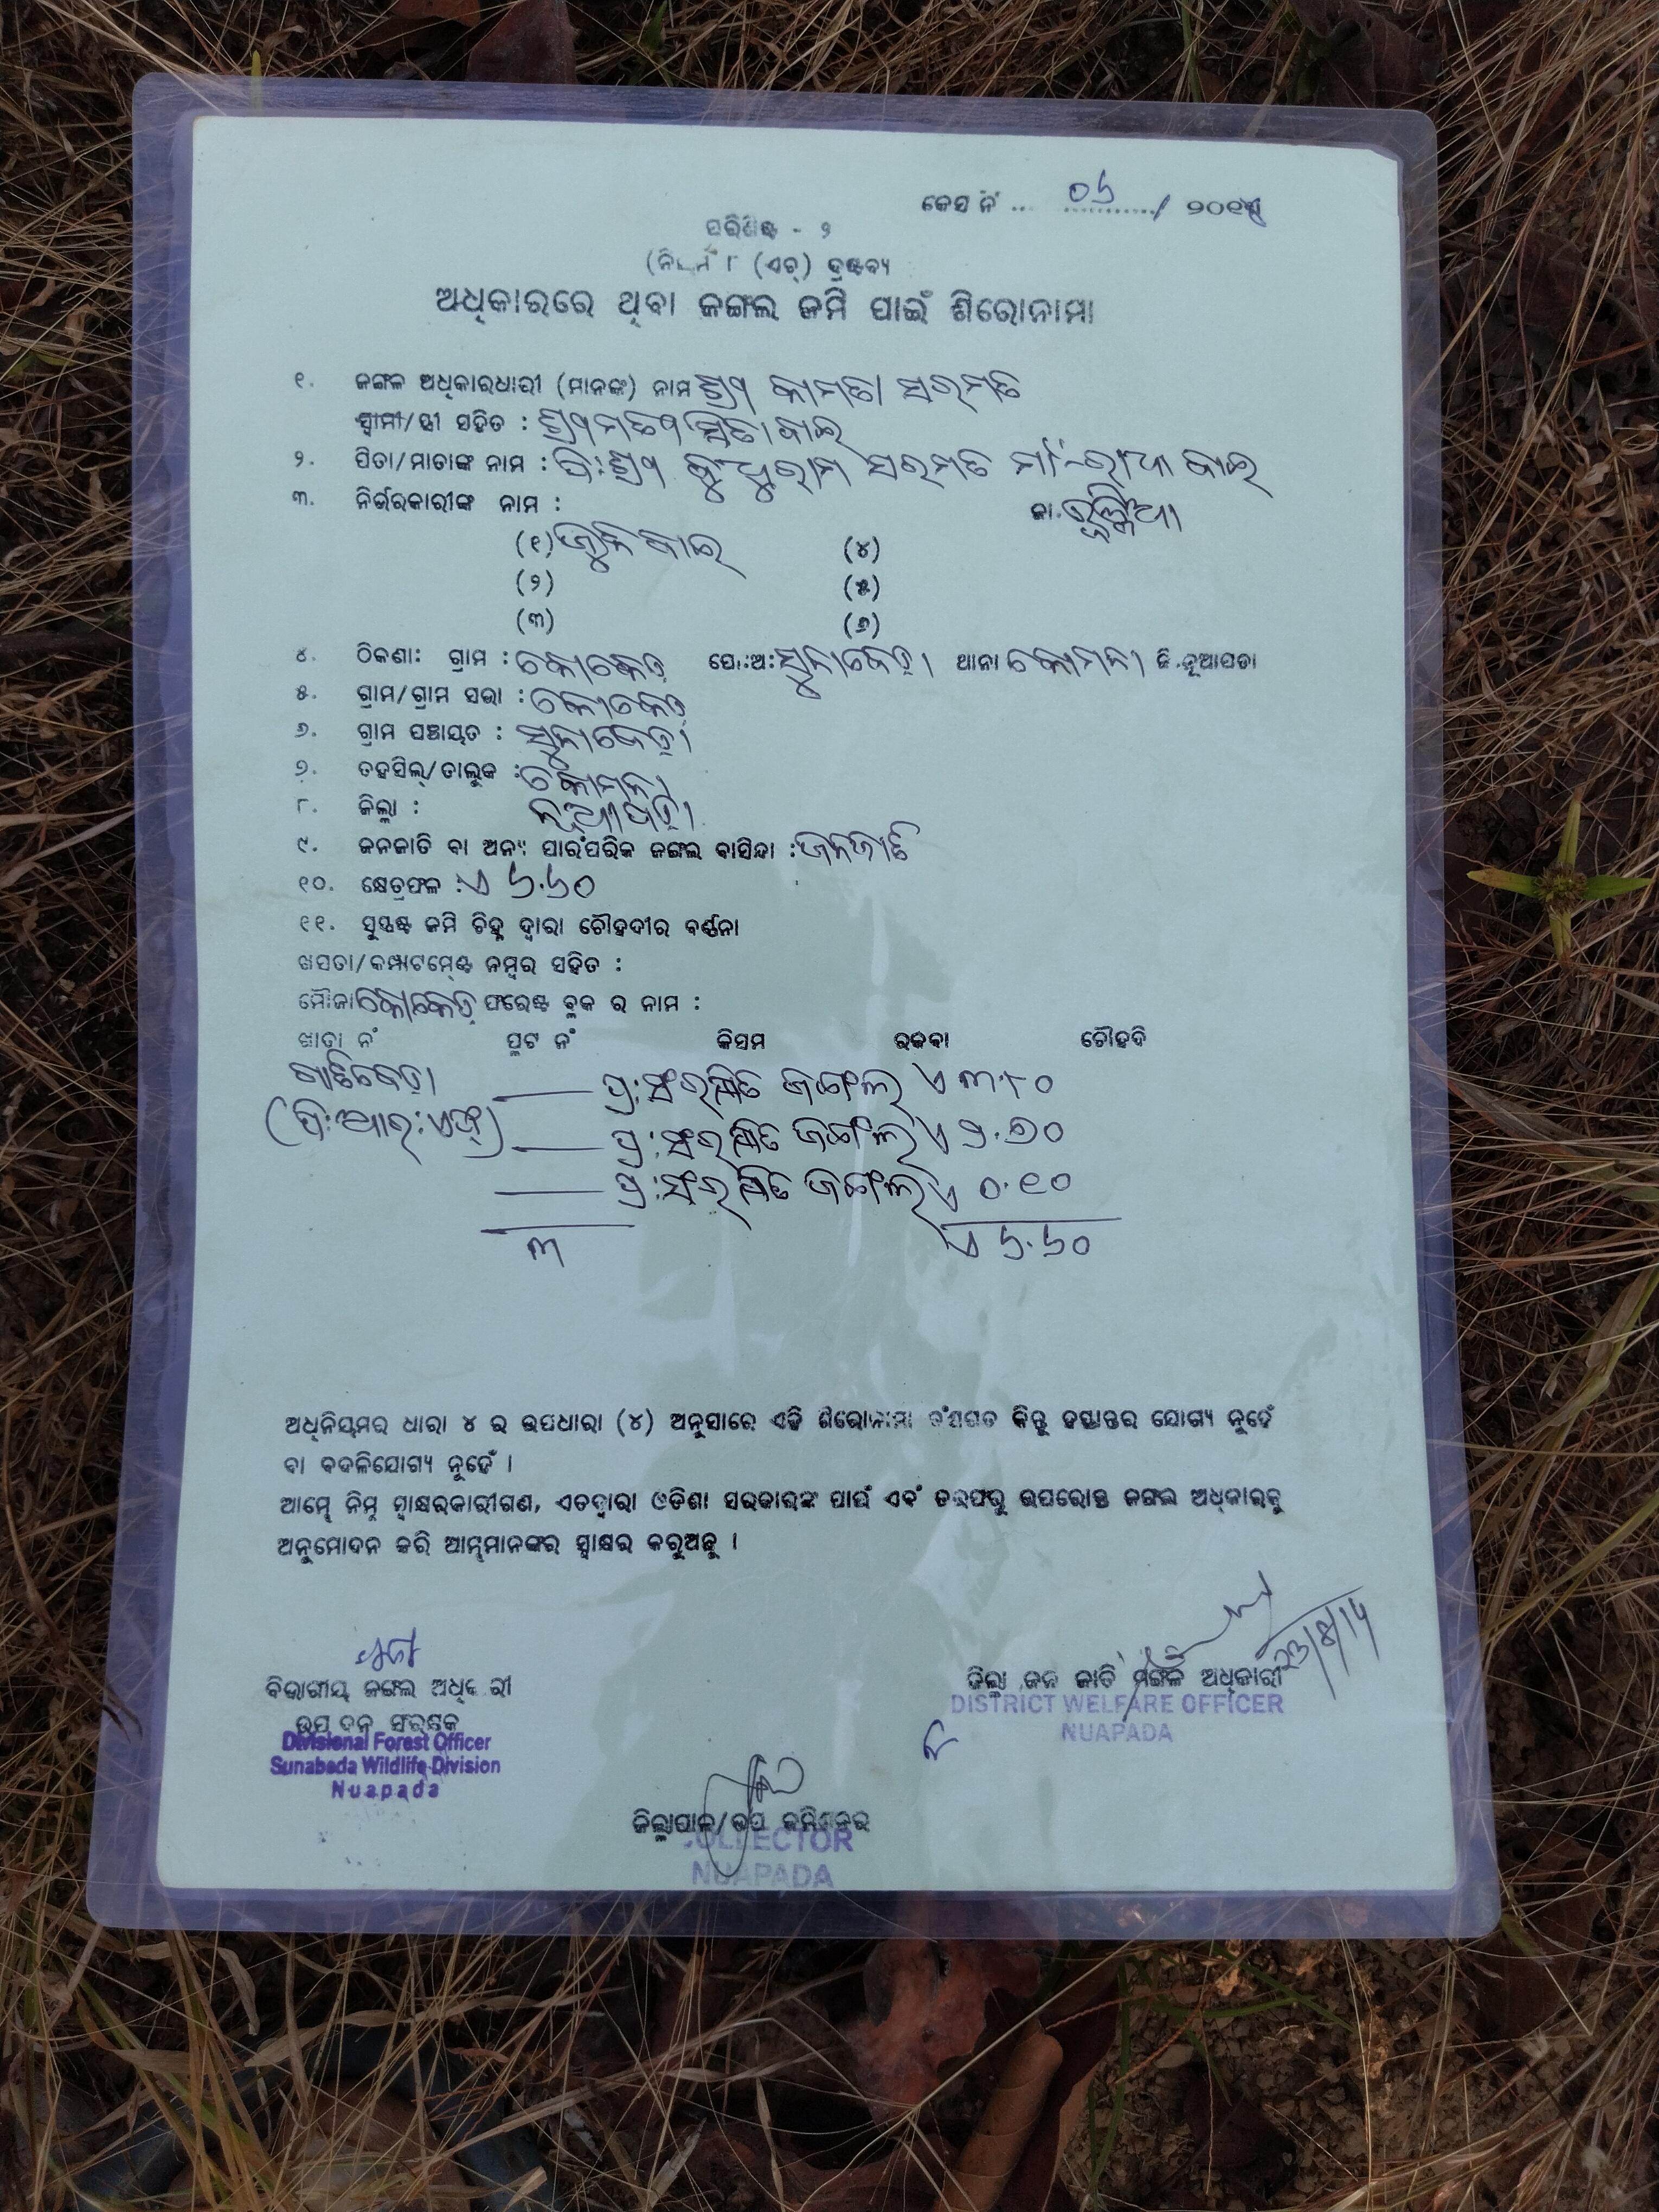 କେସ ନଂ ... ୦୬ / ୨୦୧୫
ପରିଶିଷ୍ଟ - ୨
(ନିୟମ ୮ (ଏଚ୍) ଦ୍ରଷ୍ଟବ୍ୟ
ଅଧିକାରରେ ଥିବା ଜଙ୍ଗଲ ଜମି ପାଇଁ ଶିରୋନାମା
୧. ଜଙ୍ଗଲ ଅଧିକାରଧାରୀ (ମାନଙ୍କ) ନାମ ଶ୍ରୀ କାମତା ସରମତ
ସ୍ୱାମୀ/ସ୍ତ୍ରୀ ସହିତ : ଶ୍ରୀମତୀ ସିତା ବାଇ
୨. ପିତା/ମାତାଙ୍କ ନାମ : ପି:ଶ୍ରୀ ବୁଧୁରାମ ସରମତ ମା:-ରାଧା ବାଇ
୩. ନିର୍ଭରକାରୀଙ୍କ ନାମ : ଜା. ଭୁଞ୍ଜିଆ
(୧) ଜୁନି ବାଇ (୪)
(୨) (୫)
(୩) (୬)
୪. ଠିକଣା: ଗ୍ରାମ : କୋକେଡ଼ ପୋ:ଅ: ସୁନାବେଡ଼ା ଥାନା କୋମନା ଜି.ନୂଆପଡା
୫. ଗ୍ରାମ/ଗ୍ରାମ ସଭା : କୋକେଡ଼
୬. ଗ୍ରାମ ପଞ୍ଚାୟତ : ସୁନାବେଡ଼ା
୭. ତହସିଲ୍/ତାଲୁକ : କୋମନା
୮. ଜିଲ୍ଲା : ନୂଆପଡ଼ା
୯. ଜନଜାତି ବା ଅନ୍ୟ ପାରଂପରିକ ଜଙ୍ଗଲ ବାସିନ୍ଦା : ଜନଜାତି
୧୦. କ୍ଷେତ୍ରଫଳ : ଏ ୬.୬୦
୧୧. ସୁସ୍ପଷ୍ଟ ଜମି ଚିହ୍ନ ଦ୍ୱାରା ଚୌହଦୀର ବର୍ଣ୍ଣନା
ଖସଡା/କମ୍ପାଟମେଣ୍ଟ ନମ୍ବର ସହିତ :
ମୌଜା କୋକେଡ଼ ଫରେଷ୍ଟ ବ୍ଲକ ର ନାମ :
ଖାତା ନଂ ପ୍ଲଟ ନଂ କିସମ ରକବା ଚୌହଦି
ପ୍ର:ସଂରକ୍ଷିତ ଜଙ୍ଗଲ ଏ ୩.୮୦
(ପି:ଆର:ଏଫ୍) ପ୍ର:ସଂରକ୍ଷିତ ଜଙ୍ଗଲ ଏ ୨.୭୦
ପ୍ର:ସଂରକ୍ଷିତ ଜଙ୍ଗଲ ଏ ୦.୧୦
୩ ଏ ୬.୬୦
ଅଧିନିୟମର ଧାରା ୪ ର ଉପଧାରା (୪) ଅନୁସାରେ ଏହି ଶିରୋନାମା ବଂଶଗତ କିନ୍ତୁ ହସ୍ତାନ୍ତର ଯୋଗ୍ୟ ନୁହେଁ
ବା ବଦଳିଯୋଗ୍ୟ ନୁହେଁ ।
ଆମ୍ଭେ ନିମ୍ନ ସ୍ୱାକ୍ଷରକାରୀଗଣ, ଏତଦ୍ୱାରା ଓଡିଶା ସରକାରଙ୍କ ପାଇଁ ଏବଂ ତରଫରୁ ଉପରୋକ୍ତ ଜଙ୍ଗଲ ଅଧିକାରକୁ
ଅନୁମୋଦନ କରି ଆମ୍ଭମାନଙ୍କର ସ୍ୱାକ୍ଷର କରୁଅଛୁ ।
ଜିଲ୍ଲା ଜନ ଜାତି ମଙ୍ଗଳ ଅଧିକାରୀ
DISTRICT WELFARE OFFICER
NUAPADA
ବିଭାଗୀୟ ଜଙ୍ଗଲ ଅଧିକାରୀ
ଉପ ବନ ସଂରକ୍ଷକ
Divisional Forest Officer
Sunabada Wildlife Division
Nuapada
ଜିଲ୍ଲାପାଳ/ଉପ କମିଶନର
COLLECTOR
NUAPADA